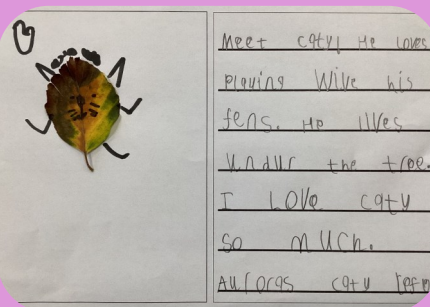 Meet caty! He loves
playing Wive his
fens. He lives
undur the tree.
I LOVe caty
so much.
Auroras caty